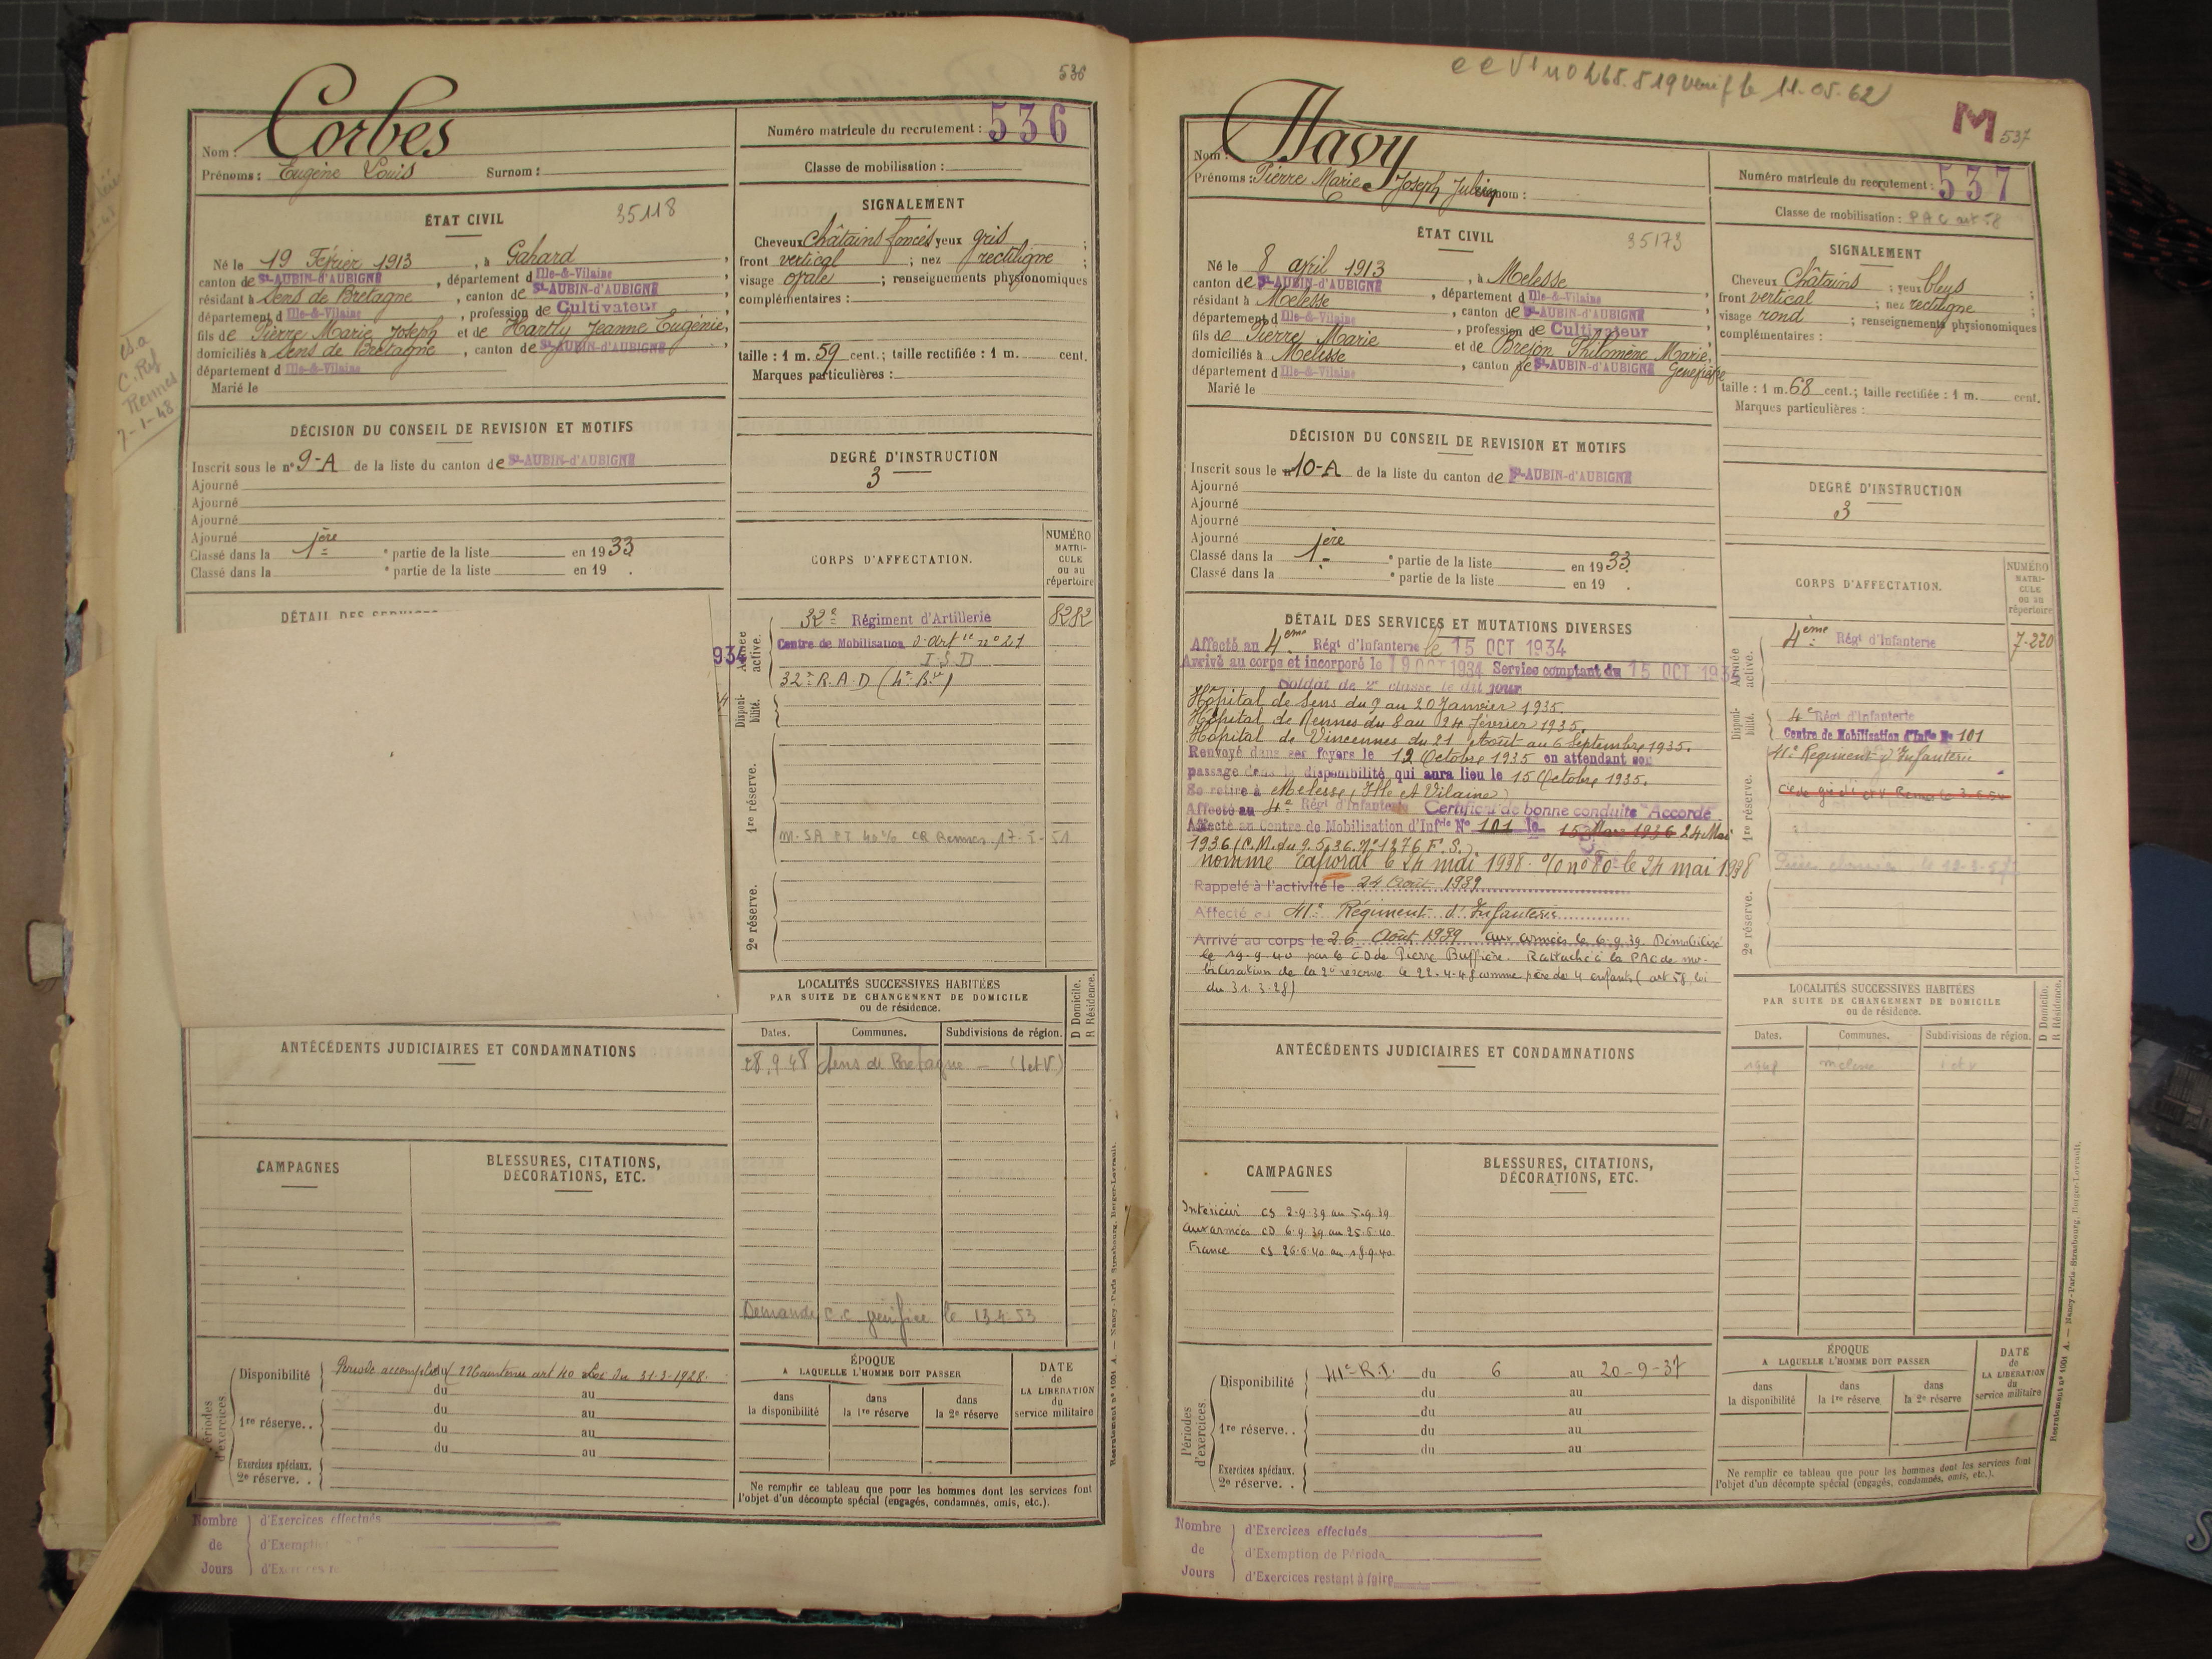 536
Corbes
Nom :
Prénoms : Eugène Louis Surnom :
Numéro matricule du recrutement : 536
Classe de mobilisation :
ÉTAT CIVIL 35118
Né le 19 Février 1913, à Gahard
canton de St-AUBIN-d'AUBIGNÉ, département d Ille-&-Vilaine
résidant à Sens de Bretagne, canton de St-AUBIN-d'AUBIGNÉ
département d Ille-&-Vilaine, profession de Cultivateur
fils de Pierre Marie Joseph et de Hardy Jeanne Eugénie,
domiciliés à Sens de Bretagne, canton de St-AUBIN-d'AUBIGNÉ
département d Ille-&-Vilaine
Marié le
SIGNALEMENT
Cheveux châtains foncés yeux gris ;
front vertical ; nez rectiligne ;
visage ovale ; renseignements physionomiques
complémentaires :
taille : 1 m. 59 cent.; taille rectifiée : 1 m. cent.
Marques particulières :
C. Ref
Rennes
7-1-48
DÉCISION DU CONSEIL DE REVISION ET MOTIFS
Inscrit sous le n° 9-A de la liste du canton de St-AUBIN-d'AUBIGNÉ
Ajourné
Ajourné
Ajourné
Ajourné
Classé dans la 1ère partie de la liste en 1933
Classé dans la partie de la liste en 19 .
DEGRÉ D'INSTRUCTION
3
DÉTAIL DES
CORPS D'AFFECTATION.
NUMÉRO MATRICULE ou au répertoire
Armée active.
32e Régiment d'Artillerie 8282
Centre de Mobilisation d'Artie n° 21
32e R.A.D (4e Bie)
934
Disponibilité.
1re réserve.
Rennes 17-5-51
2e réserve.
LOCALITÉS SUCCESSIVES HABITÉES
PAR SUITE DE CHANGEMENT DE DOMICILE
ou de résidence.
D Domicile.
R Résidence.
Dates. Communes. Subdivisions de région.
28.9.48 Sens de Bretagne — (I et V)
Demande c.c. le 13.4.53
ANTÉCÉDENTS JUDICIAIRES ET CONDAMNATIONS
CAMPAGNES
BLESSURES, CITATIONS,
DÉCORATIONS, ETC.
Périodes d'exercices
Disponibilité Période accomplie art 40 Loi du 31-3-1928.
du au
1re réserve. . du au
du au
du au
Exercices spéciaux.
2e réserve. .
ÉPOQUE
A LAQUELLE L'HOMME DOIT PASSER
dans la disponibilité
dans la 1re réserve
dans la 2e réserve
DATE de LA LIBÉRATION du service militaire
Ne remplir ce tableau que pour les hommes dont les services font
l'objet d'un décompte spécial (engagés, condamnés, omis, etc.).
Nombre de Jours
d'Exercices effectués
d'Exemption
d'Exercices
Recrutement n° 1001 A. — Nancy-Paris-Strasbourg, Berger-Levrault.
le 11.05.62
M
537
Havy
Nom :
Prénoms : Pierre Marie Joseph Julien Surnom :
Numéro matricule du recrutement : 537
Classe de mobilisation : PAC art 58
ÉTAT CIVIL 35173
Né le 8 avril 1913, à Melesse
canton de St-AUBIN-d'AUBIGNÉ, département d Ille-&-Vilaine
résidant à Melesse, canton de St-AUBIN-d'AUBIGNÉ
département d Ille-&-Vilaine, profession de Cultivateur
fils de Pierre Marie et de Brejon Philomène Marie, Geneviève
domiciliés à Melesse, canton de St-AUBIN-d'AUBIGNÉ
département d Ille-&-Vilaine
Marié le
SIGNALEMENT
Cheveux Châtains ; yeux bleus ;
front vertical ; nez rectiligne ;
visage rond ; renseignements physionomiques
complémentaires :
taille : 1 m. 68 cent.; taille rectifiée : 1 m. cent.
Marques particulières :
DÉCISION DU CONSEIL DE REVISION ET MOTIFS
Inscrit sous le n° 10-A de la liste du canton de St-AUBIN-d'AUBIGNÉ
Ajourné
Ajourné
Ajourné
Ajourné
Classé dans la 1ère partie de la liste en 1933.
Classé dans la partie de la liste en 19 .
DEGRÉ D'INSTRUCTION
3
DÉTAIL DES SERVICES ET MUTATIONS DIVERSES
Affecté au 4ème Régt d'Infanterie le 15 OCT 1934
Arrivé au corps et incorporé le 19 OCT 1934 Service comptant du 15 OCT 1934
Soldat de 2e classe le dit jour
Hôpital de Sens du 9 au 20 Janvier 1935.
Hôpital de Rennes du 8 au 24 Février 1935.
Hôpital de Vincennes du 21 Août au 6 Septembre 1935.
Renvoyé dans ses foyers le 12 Octobre 1935 en attendant son
passage dans la disponibilité qui aura lieu le 15 Octobre 1935.
Se retire à Melesse (Ille et Vilaine)
Affecté au 4e Régt d'Infanterie Certificat de bonne conduite "Accordé"
Affecté au Centre de Mobilisation d'Infie N° 101 le 15 Mars 1936 24 Mai
1936 (C.M. du 9.5.36. N° 1276 F.S.)
nommé Caporal le 24 mai 1938. O/O n° 80 le 24 mai 1938
Rappelé à l'activité le 24 Août 1939
Affecté au 41e Régiment d'Infanterie
Arrivé au corps le 26 Août 1939 aux armées le 6-9-39. Démobilisé
le 19-9-40 par le CD de Pierre Buffière. Rattaché à la PAC de mo-
bilisation de la 2e réserve le 22-4-48 comme père de 4 enfants (art 58, loi
du 31.3.28)
CORPS D'AFFECTATION.
NUMÉRO MATRICULE ou au répertoire
Armée active.
4ème Régt d'Infanterie 7-220
Disponibilité.
4e Régt d'Infanterie
Centre de Mobilisation d'Infie N° 101
41e Régiment d'Infanterie
1re réserve.
2e réserve.
LOCALITÉS SUCCESSIVES HABITÉES
PAR SUITE DE CHANGEMENT DE DOMICILE
ou de résidence.
D Domicile.
R Résidence.
Dates. Communes. Subdivisions de région.
1948 melesse i et v
ANTÉCÉDENTS JUDICIAIRES ET CONDAMNATIONS
CAMPAGNES
Intérieur CS 2-9-39 au 5-9-39
aux armées CD 6-9-39 au 25-6-40
France CS 26-6-40 au 18-9-40
BLESSURES, CITATIONS,
DÉCORATIONS, ETC.
Périodes d'exercices.
Disponibilité 41e R.I. du 6 au 20-9-37
du au
1re réserve. . du au
du au
du au
Exercices spéciaux.
2e réserve. .
ÉPOQUE
A LAQUELLE L'HOMME DOIT PASSER
dans la disponibilité
dans la 1re réserve
dans la 2e réserve
DATE de LA LIBÉRATION du service militaire
Ne remplir ce tableau que pour les hommes dont les services font
l'objet d'un décompte spécial (engagés, condamnés, omis, etc.).
Nombre de Jours
d'Exercices effectués
d'Exemption de Période
d'Exercices restant à faire
Recrutement n° 1001 A. — Nancy-Paris-Strasbourg, Berger-Levrault.